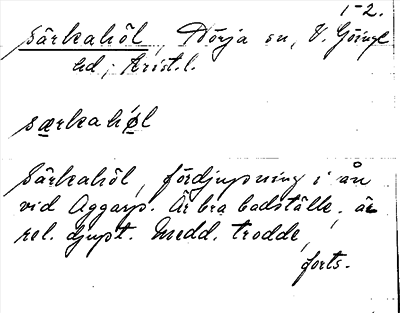 1-2.
Särkahöl, Dörja sn, V. Göinge
hd; Krist.l.
særkahøl
Särkahöl, fördjupning i ån
vid Aggarp. Är bra badställe, är
rel. djupt. Medd. trodde,
forts.